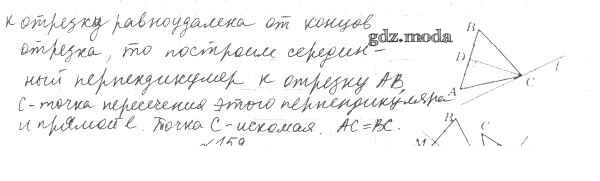 к отрезку равноудалена от концов
gdz.moda
отрезка, то построим середин-
ный перпендикуляр к отрезку AB,
C-точка пересечения этого перпендикуляра
и прямой l. Точка C-искомая. AC=BC.
B
D
A
C
l
№159
B
M
C